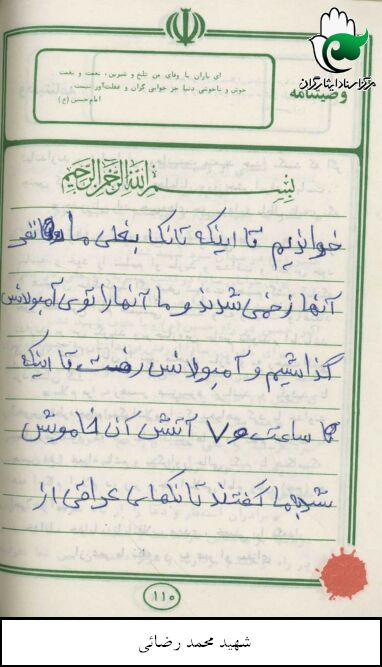 مرکز اسناد ایثارگران
وصیتنامه
ای یاران با وفای من تلخ و شیرین، نعمت و نقمت
خوش و ناخوشی دنیا جز خوابی گران و غفلت‌آور نیست
امام حسین (ع)
بسم الله الرحمن الرحیم
خواندیم تا اینکه تانک بغلی ما نفر
آنها زخمی شدند و ما آنها را توی آمبولانس
گذاشتیم و آمبولانس رفت تا اینکه
تا ساعت ۷ آتش آن خاموش
شد بما گفتند تانکهای عراقی از
۱۱۰
شهید محمد رضائی